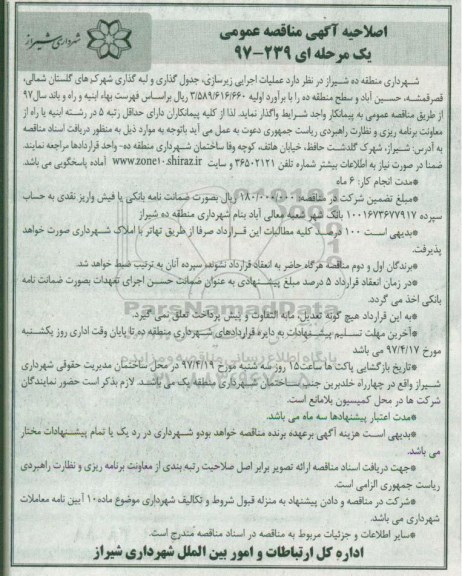 شهرداری شیراز
اصلاحیه آگهی مناقصه عمومی
یک مرحله ای ۲۳۹-۹۷
شهرداری منطقه ده شیراز در نظر دارد عملیات اجرایی زیرسازی، جدول گذاری و لبه گذاری شهرکهای گلستان شمالی،
قصرقمشه، حسین آباد و سطح منطقه ده را با برآورد اولیه ۳/۵۸۹/۶۱۶/۶۶۰ ریال براساس فهرست بهاء ابنیه و راه و باند سال۹۷
از طریق مناقصه عمومی به پیمانکار واجد شرایط واگذار نماید. لذا از کلیه پیمانکاران دارای حداقل رتبه ۵ در رشته ابنیه یا راه از
معاونت برنامه ریزی و نظارت راهبردی ریاست جمهوری دعوت به عمل می آید باتوجه به موارد ذیل به منظور دریافت اسناد مناقصه
به آدرس: شیراز، شهرک گلدشت حافظ، خیابان هاتف، کوچه وفا ساختمان شهرداری منطقه ده- واحد قراردادها مراجعه نمایند.
ضمنا در صورت نیاز به اطلاعات بیشتر شماره تلفن ۳۶۵۰۲۱۲۱ و سایت www.zone10.shiraz.ir آماده پاسخگویی می باشد.
*مدت انجام کار: ۶ ماه
*مبلغ تضمین شرکت در مناقصه: ۱۸۰/۰۰۰/۰۰۰ ریال بصورت ضمانت نامه بانکی یا فیش واریز نقدی به حساب
سپرده ۱۰۰۱۶۷۳۶۷۷۹۱۷ بانک شهر شعبه معالی آباد بنام شهرداری منطقه ده شیراز
*بدیهی است ۱۰۰ درصد کلیه مطالبات این قرارداد صرفا از طریق تهاتر با املاک شهرداری صورت خواهد
پذیرفت.
*برندگان اول و دوم مناقصه هرگاه حاضر به انعقاد قرارداد نشوند، سپرده آنان به ترتیب ضبط خواهد شد.
*در زمان انعقاد قرارداد ۵ درصد مبلغ پیشنهادی به عنوان ضمانت حسن اجرای تعهدات بصورت ضمانت نامه
بانکی اخذ می گردد.
*به این قرارداد هیچ گونه تعدیل، مابه التفاوت و پیش پرداخت تعلق نمی گیرد.
*آخرین مهلت تسلیم پیشنهادات به دایره قراردادهای شهرداری منطقه ده تا پایان وقت اداری روز یکشنبه
مورخ ۹۷/۴/۱۷ می باشد
*تاریخ بازگشایی پاکت ها ساعت۱۵ روز سه شنبه مورخ ۹۷/۴/۱۹ در محل ساختمان مدیریت حقوقی شهرداری
شیراز واقع در چهارراه خلدبرین جنب ساختمان شهرداری منطقه یک می باشند. لازم بذکر است حضور نمایندگان
شرکت ها در محل کمیسیون بلامانع است.
*مدت اعتبار پیشنهادها سه ماه می باشد.
*بدیهی است هزینه آگهی برعهده برنده مناقصه خواهد بودو شهرداری در رد یک یا تمام پیشنهادات مختار
می باشد.
*جهت دریافت اسناد مناقصه ارائه تصویر برابر اصل صلاحیت رتبه بندی از معاونت برنامه ریزی و نظارت راهبردی
ریاست جمهوری الزامی است.
*شرکت در مناقصه و دادن پیشنهاد به منزله قبول شروط و تکالیف شهرداری موضوع ماده۱۰ آیین نامه معاملات
شهرداری می باشد.
*سایر اطلاعات و جزئیات مربوط به مناقصه در اسناد مناقصه مندرج است.
اداره کل ارتباطات و امور بین الملل شهرداری شیراز
ParsNamadData
پایگاه اطلاع رسانی مناقصه و مزایده